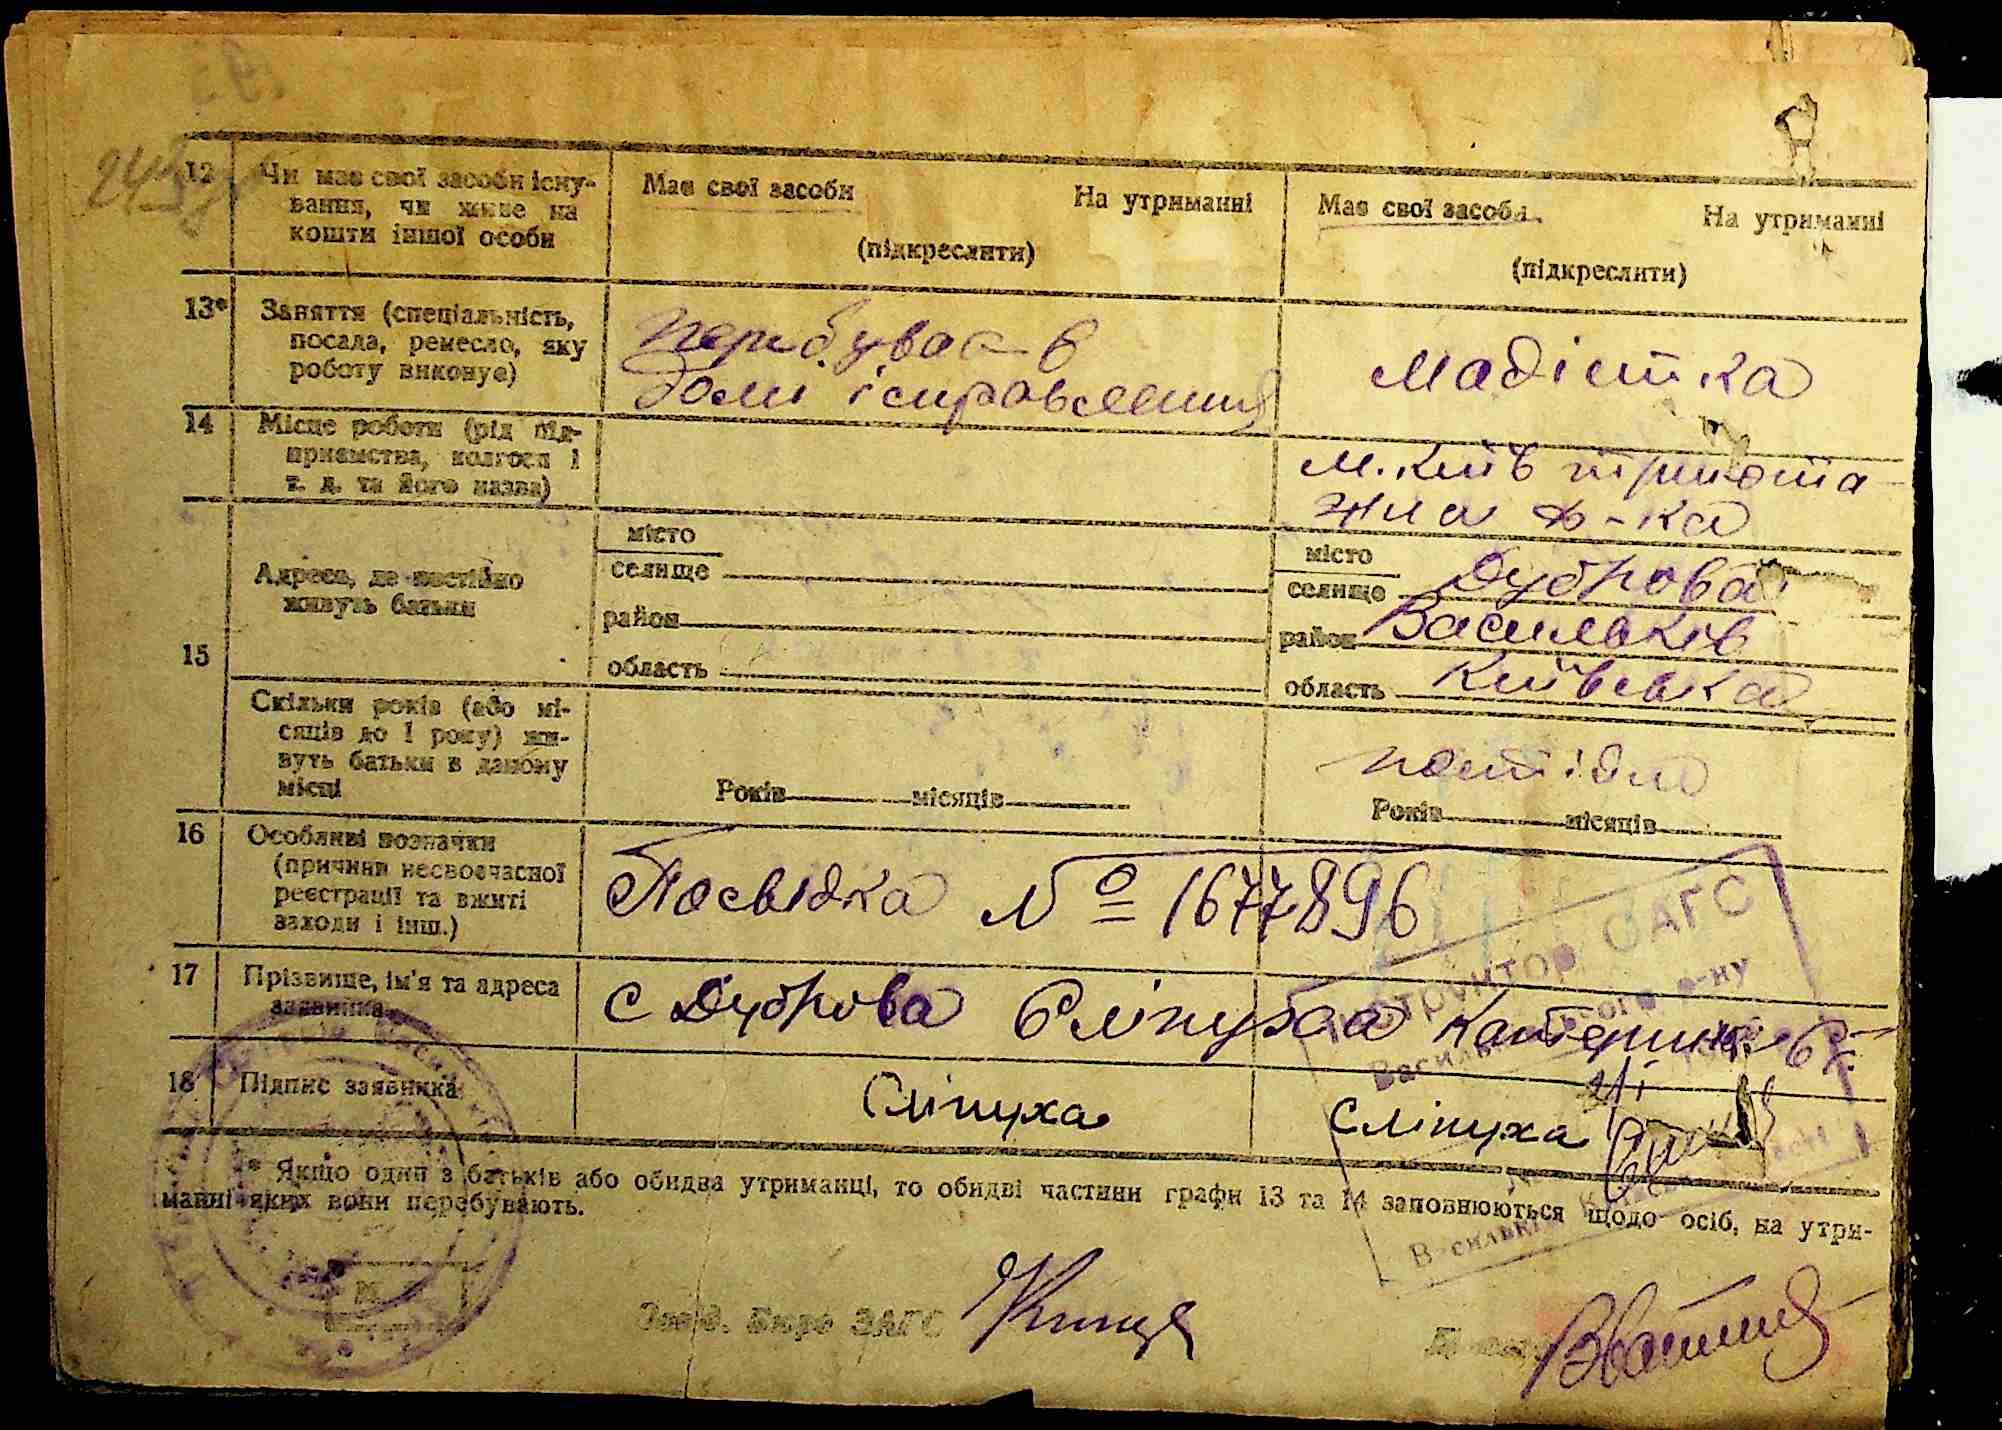 12 Чи має свої засоби існу-
вання, чи живе на
кошти іншої особи
Має свої засоби На утриманні
(підкреслити)
Має свої засоби На утриманні
(підкреслити)
13* Заняття (спеціальність,
посада, ремесло, яку
роботу виконує)
перебуває в
домі ісправлення
Мадістка
14 Місце роботи (рід під-
приємства, колгосп і
т. д. та його назва)
м. Київ трикота
жна ф-ка
15
Адреса, де постійно
живуть батьки
місто
селище
район
область
місто
селище Дуброва
район Васильків
область Київська
Скільки років (або мі-
сяців до 1 року) жи-
вуть батьки в даному
місці
Років місяців
постійно
Років місяців
16 Особливі позначки
(причини несвоєчасної
реєстрації та вжиті
заходи і інш.)
Посвідка № 1677896
17 Прізвище, ім'я та адреса
заявника
с Дуброва Сліпуха Катерина
18 Підпис заявника
Сліпуха
Сліпуха
* Якщо один з батьків або обидва утриманці, то обидві частини графи 13 та 14 заповнюються щодо осіб, на утри-
манні яких вони перебувають.
Завід. Бюро ЗАГС